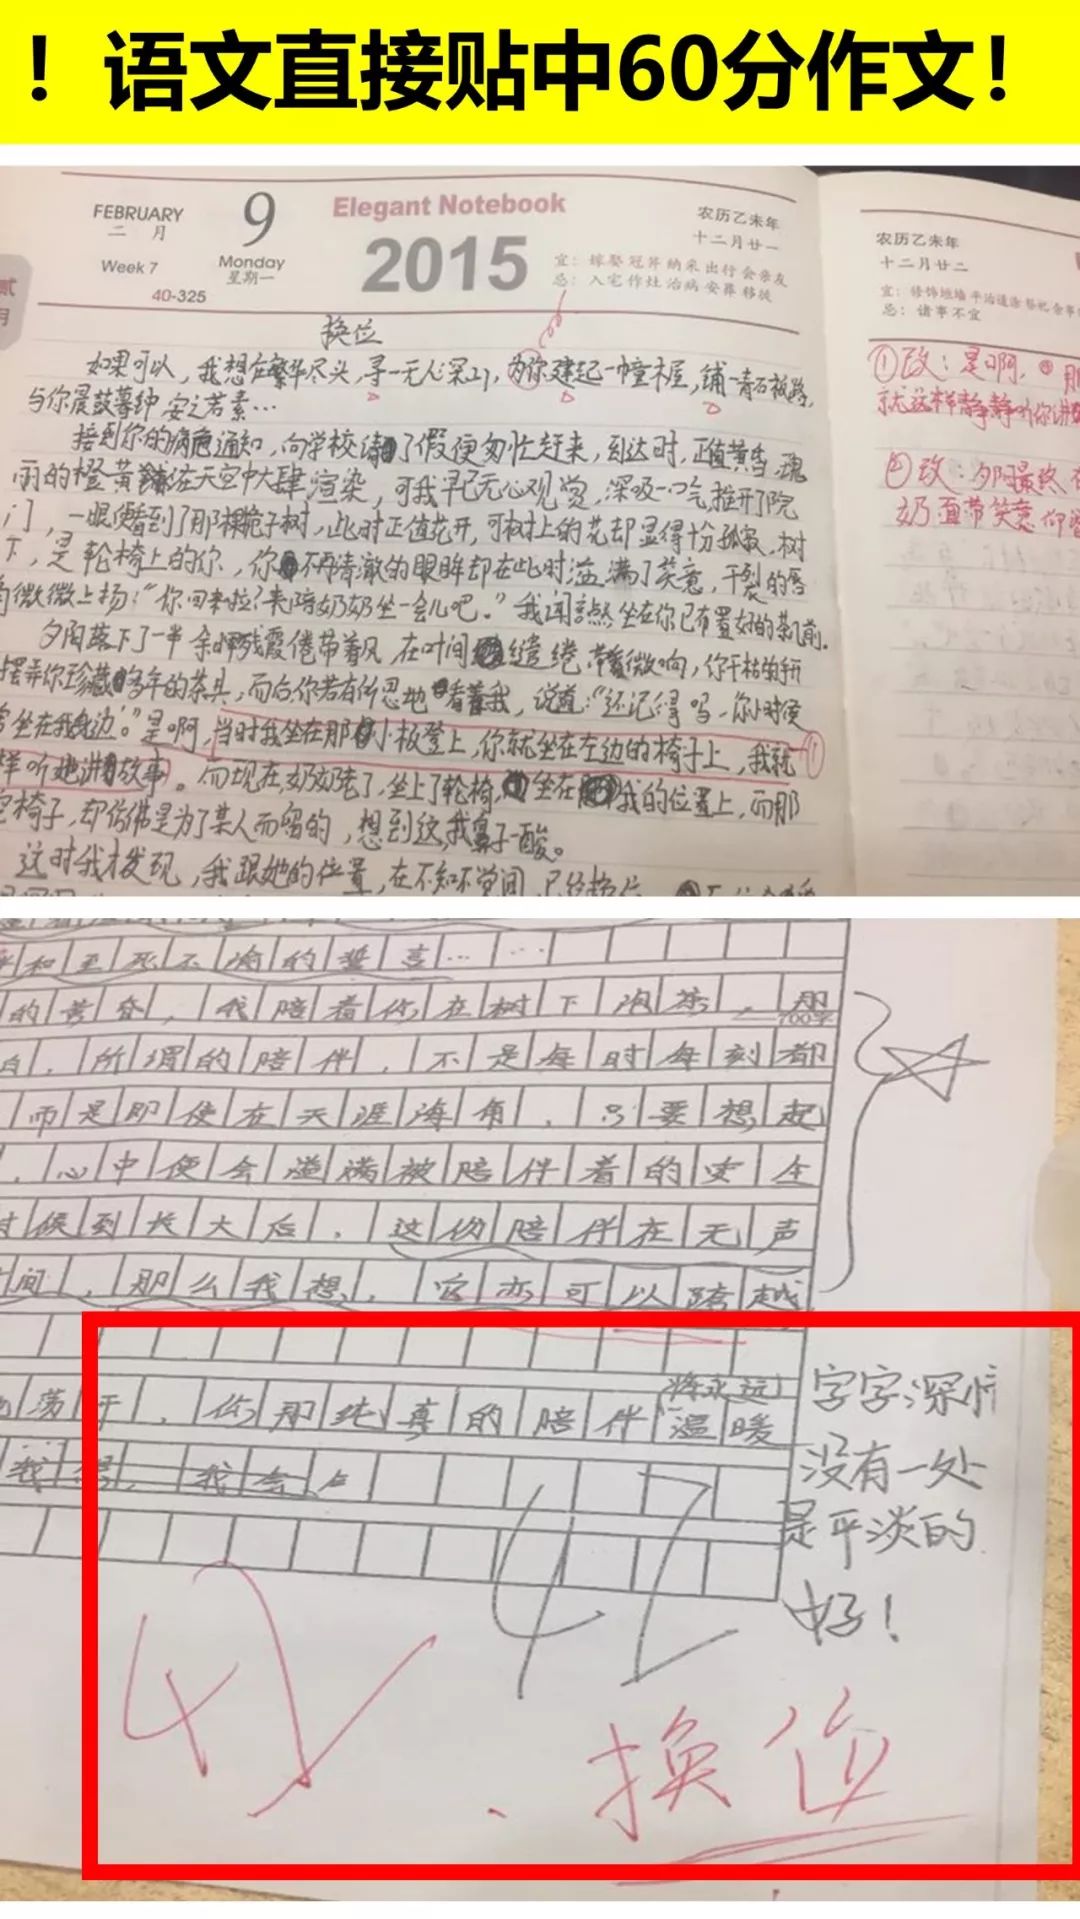 ！语文直接贴中60分作文！
FEBRUARY
二 月
9
Elegant Notebook
农历乙未年
十二月廿一
Week 7
Monday
星期一
2015
宜：嫁娶 冠笄 纳采 出行 会亲友
忌：入宅 作灶 治病 安葬 移徙
40-325
贰
月
农历乙未年
十二月廿二
宜：修饰垣墙 平治道涂 祭祀 余事
忌：诸事不宜
换位
如果可以，我想在繁华尽头，寻一无人深山，为你建起一幢木屋，铺一青石板路，
与你晨鼓暮钟，安之若素…
接到你的病危通知，向学校请了假便匆忙赶来，到达时，正值黄昏，瑰
丽的橙黄在天空中大肆渲染，可我早已无心观赏，深吸一口气，推开了院
门，一眼便看到了那棵栀子树，此时正值花开，可树上的花却显得十分孤寂，树
下，是轮椅上的你，你不再清澈的眼眸却在此时溢满了笑意，干裂的唇
角微微上扬：“你回来啦？来陪奶奶坐一会儿吧。”我闻言坐在你已布置好的茶几前。
夕阳落下了一半 余晖残霞倦带着风，在叶间缱绻，带微响，你干枯的手
摆弄你珍藏多年的茶具，而后你若有所思地看着我，说道：“还记得吗，你小时候
常坐在我身边。”是啊，当时我坐在那小板凳上，你就坐在左边的椅子上，我就 ①
样听她讲故事。而现在奶奶老了，坐上了轮椅，坐在我的位置上，而那
空椅子，却仿佛是为了某人而留的，想到这，我鼻子一酸。
这时我才发现，我跟她的位置，在不知不觉间，已经换位
①改：是啊，
就这样静静听你讲
②改：夕阳最终
奶面带笑意
和至死不渝的誓言……
的黄昏，我陪着你在树下泡茶，那
700字
白，所谓的陪伴，不是每时每刻都
而是即使在天涯海角，只要想起
，心中便会溢满被陪伴着的安全
时候到长大后，这份陪伴在无声
间，那么我想，它亦可以跨越
将永远
荡开，你那纯真的陪伴温暖
我想，我会
字字深情
没有一处
是平淡的
好！
42
42
换位